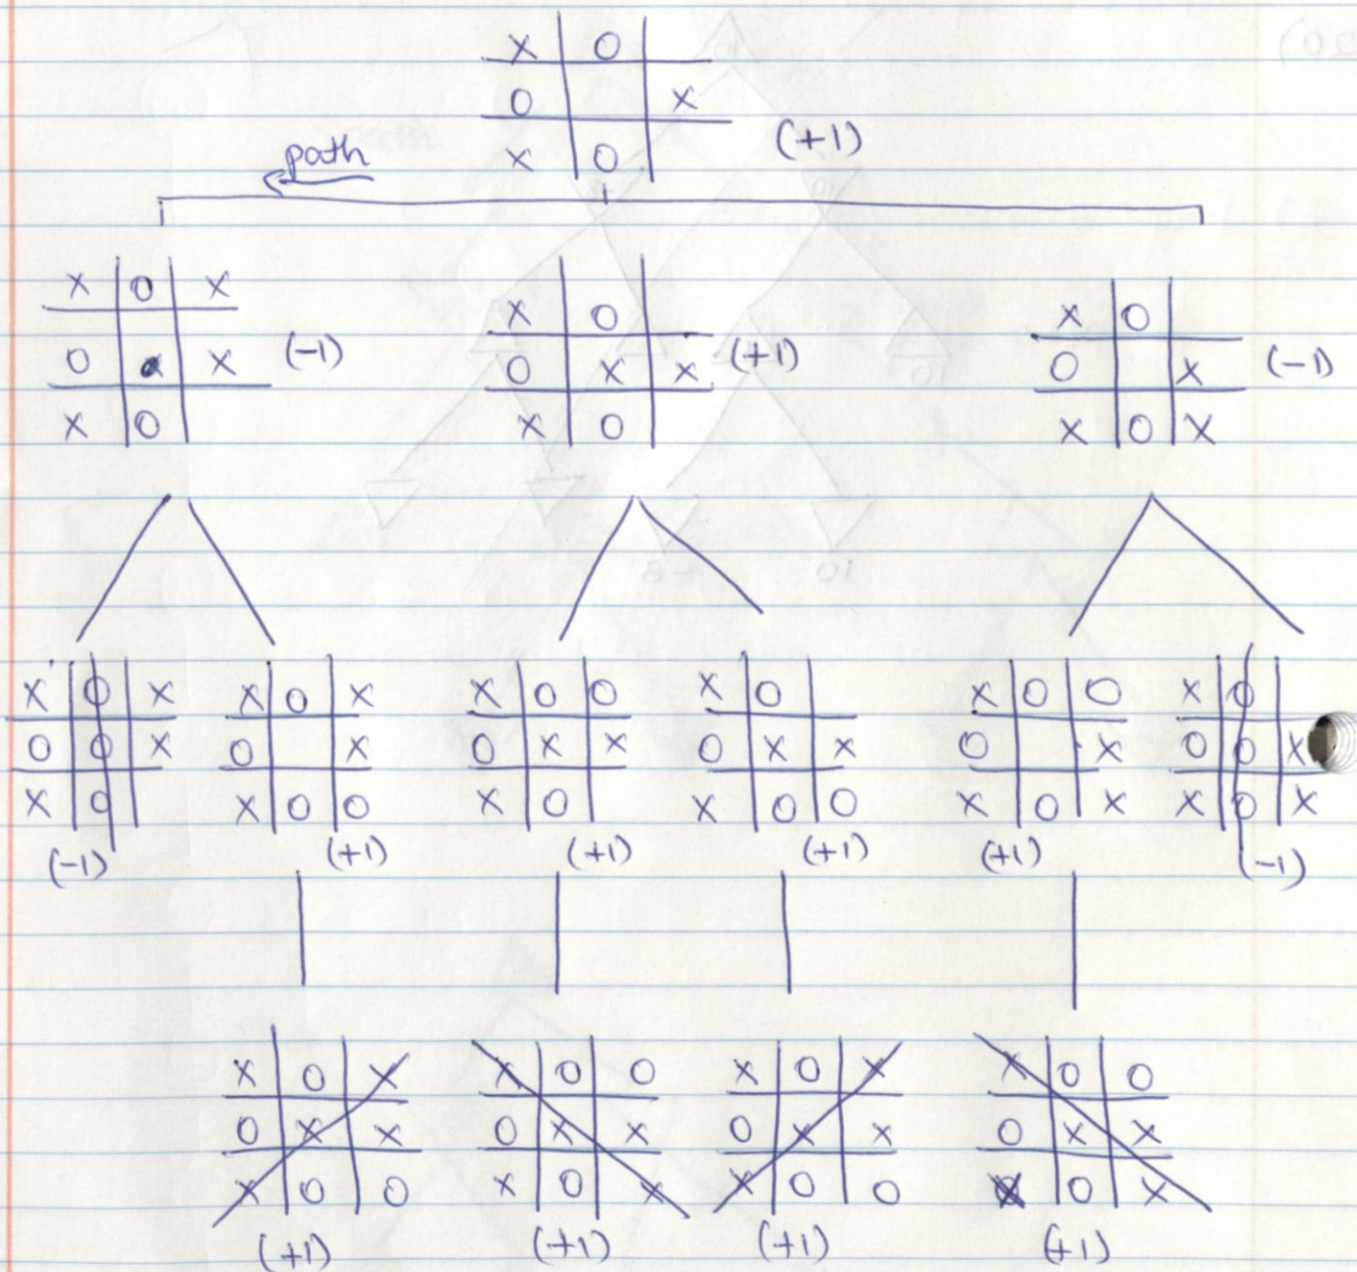 X O
O X
X O (+1)
path
X O X
O X (-1)
X O
X O
O X X (+1)
X O
X O
O X (-1)
X O X
X O X
O O X
X O
(-1)
X O X
O X
X O O
(+1)
X O O
O X X
X O
(+1)
X O
O X X
X O O
(+1)
X O O
O X
X O X
(+1)
X O
O O X
X O X
(-1)
X O X
O X X
X O O
(+1)
X O O
O X X
X O X
(+1)
X O X
O X X
X O O
(+1)
X O O
O X X
X O X
(+1)